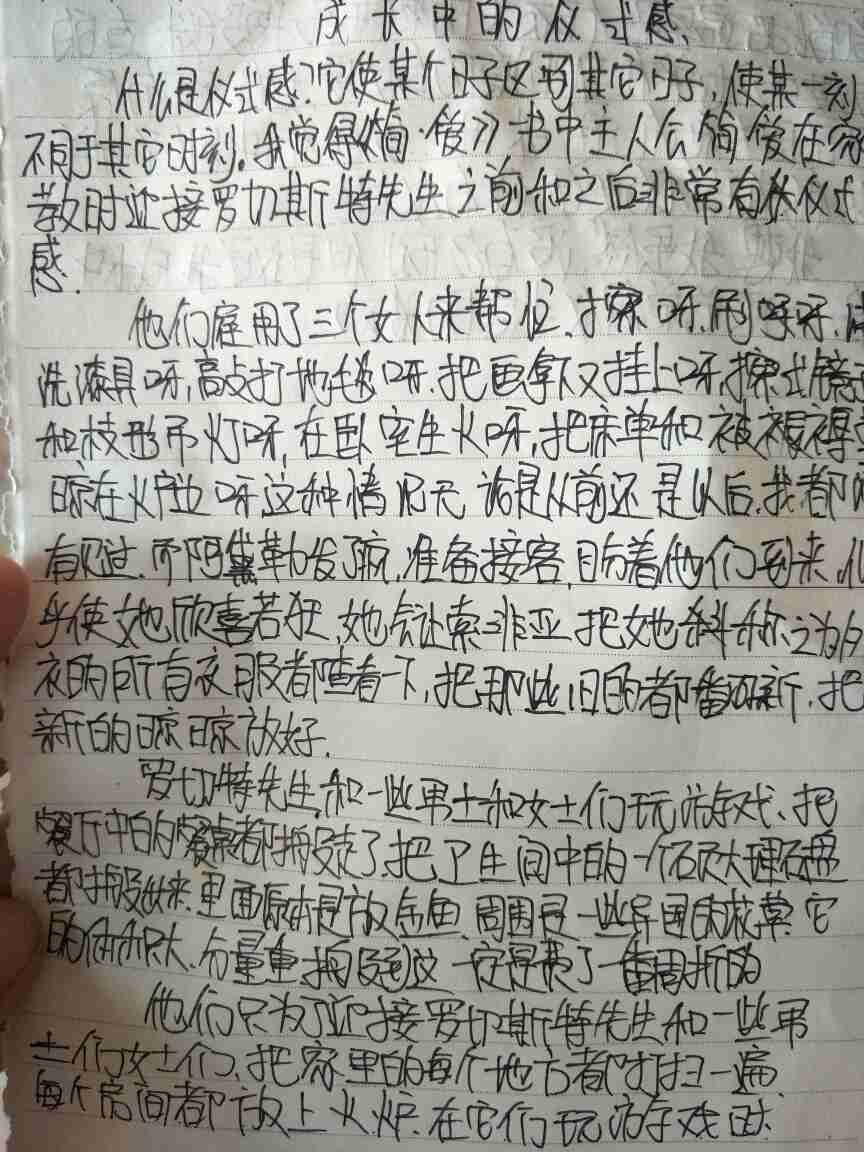 成长中的仪式感、
什么是仪式感?它使某个日子区别其它日子,使某一刻
不同于其它时刻。我觉得《简·爱》》书中主人公简爱在家
教时迎接罗切斯特先生之前和之后非常有仪式
感.
他们雇用了三个女人来帮忙、擦呀、刷呀、
洗漆具呀,高点打地毯呀、把画拿下又挂上呀,擦式镜
和枝形吊灯呀,在卧室生火呀,把床单和被褥
晾在炉边呀这种情况无论是从前还是以后,我都
有见过、而阿黛勒发了疯,准备接客,盼着他们到来,
乎使她欣喜若狂,她会让索非亚把她称之为
衣的所有衣服都查看一下,把那些旧的都番新,把
新的晾晾放好.
罗切特先生,和一些男士和女士们玩游戏、把
餐厅中的餐桌都搬走了,把卫生间中的一个石大理石盘
都搬出来,里面原本是放金鱼,周围是一些异国的花草,它
的体积大、分量重,搬到这一定是费了一番周折的
他们只为了迎接罗切斯特先生和一些男
士们女士们、把家里的每个地方都打扫一遍,
每个房间都放上火炉.在它们玩游戏时、